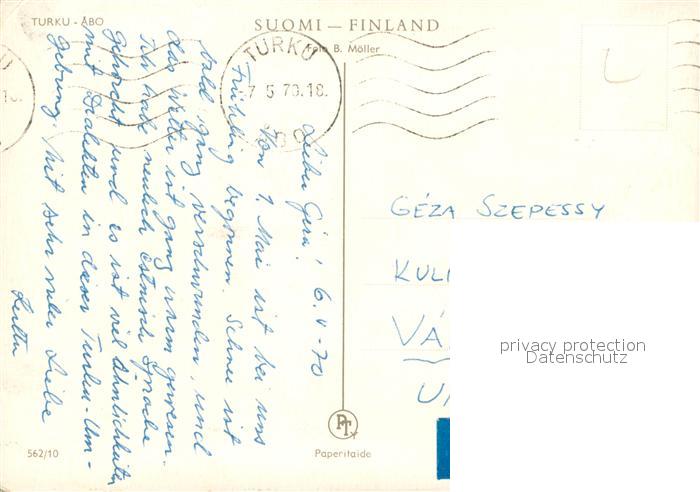 TURKU - ÅBO
SUOMI — FINLAND
Foto B. Möller
TURKU
7 5 70.18.
ÅBO
Lieber Géza! 6.V-70
Von 1. Mai ist bei uns
Frühling begonnen. Schnee ist
bald ganz verschwunden, und
das Wetter ist ganz warm gewesen.
Ich habe neulich Estnisch Sprache
gehorcht und es ist viel Ähnlichkeiten
mit Dialekten in dieser Turku-Um-
gebung. Mit sehr vieler Liebe
GÉZA SZEPESSY
KUL
VÁ
U
privacy protection
Datenschutz
562/10
PT
Paperitaide